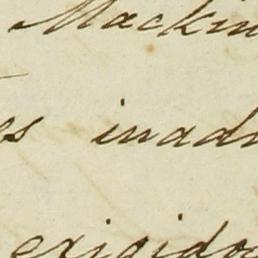 Mackin
es inadu
exigido